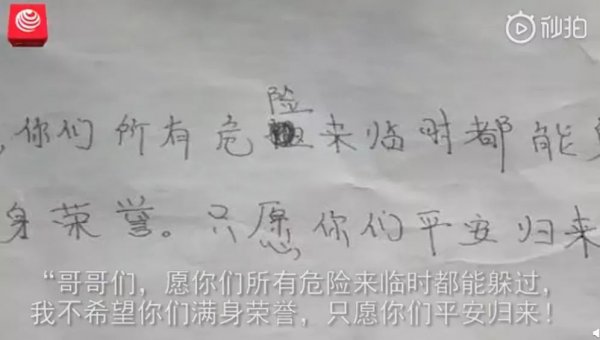 秒拍
险
,你们所有危 来临时都能
身荣誉。只愿你们平安归来
“哥哥们，愿你们所有危险来临时都能躲过，
我不希望你们满身荣誉，只愿你们平安归来！